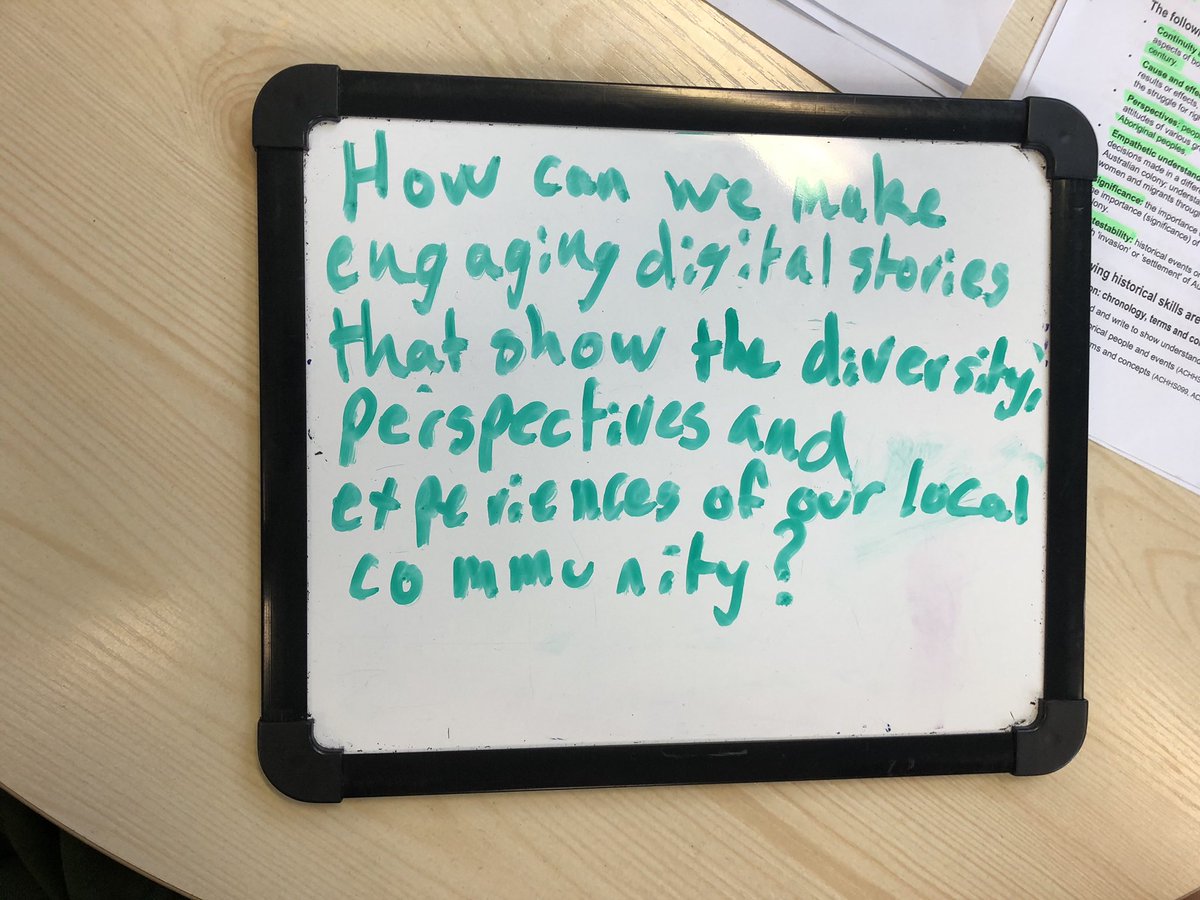 How can we make
engaging digital stories
that show the diversity,
perspectives and
experiences of our local
community?
The followi
Continuity a
aspects of bo
century.
Cause and effe
results or effects,
the struggle for rig
Perspectives: peop
attitudes of various gr
Aboriginal peoples,
Empathetic understan
decisions made in a differe
Australian colony; understa
women and migrants through
Significance: the importance
importance (significance) of
testability: historical events o
'invasion' or 'settlement' of Au
wing historical skills are
on: chronology, terms and co
d and write to show understan
orical people and events (ACHHS
ms and concepts (ACHHS099, AC